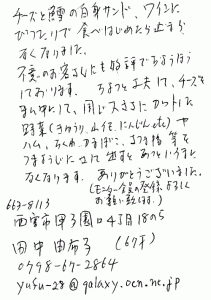 チーズと鱈の白身サンド、ワインに
ぴったりで食べはじめたら止まら
なくなりました。
不意のお客さんにも好評でちょうほう
しております。ちょっと工夫して、チーズを
まん中にして、同じ大きさにカットした
野菜(きゅうり、山任、にんじんetc)や
ハム、ちくわ、かまぼこ、さつま揚等を
つまようじにさして出すとあっというまに
なくなります。ありがとうございました。
(モニター会員の登録、よろしく
お願い致します。)
663-8113
西宮市甲子園口4丁目18の5
田中由布子(67才)
0798-67-2864
yufu-28@galaxy.ocn.ne.jp